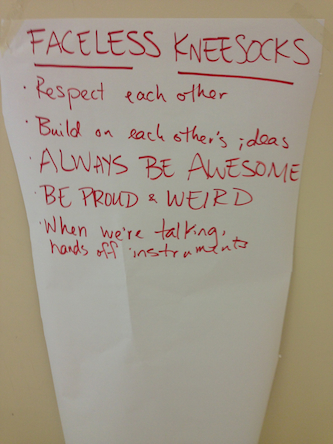 FACELESS KNEESOCKS
· Respect each other
· Build on each other's ideas
· ALWAYS BE AWESOME
· BE PROUD & WEIRD
· When we're talking,
hands off instruments